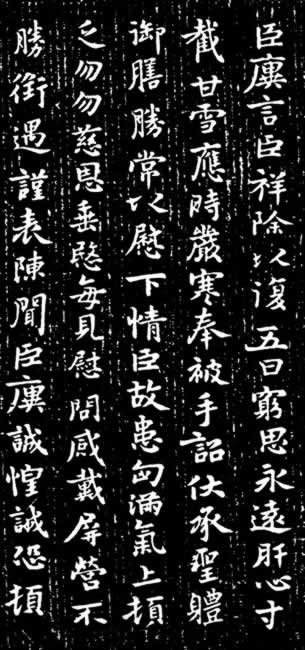 臣廙言臣祥除以復五日窮思永遠肝心寸
截甘雪應時嚴寒奉被手詔伏承聖體
御膳勝常以慰下情臣故患匈滿氣上頓
乏勿勿慈恩垂愍每見慰問感戴屏營不
勝銜遇謹表陳聞臣廙誠惶誠恐頓